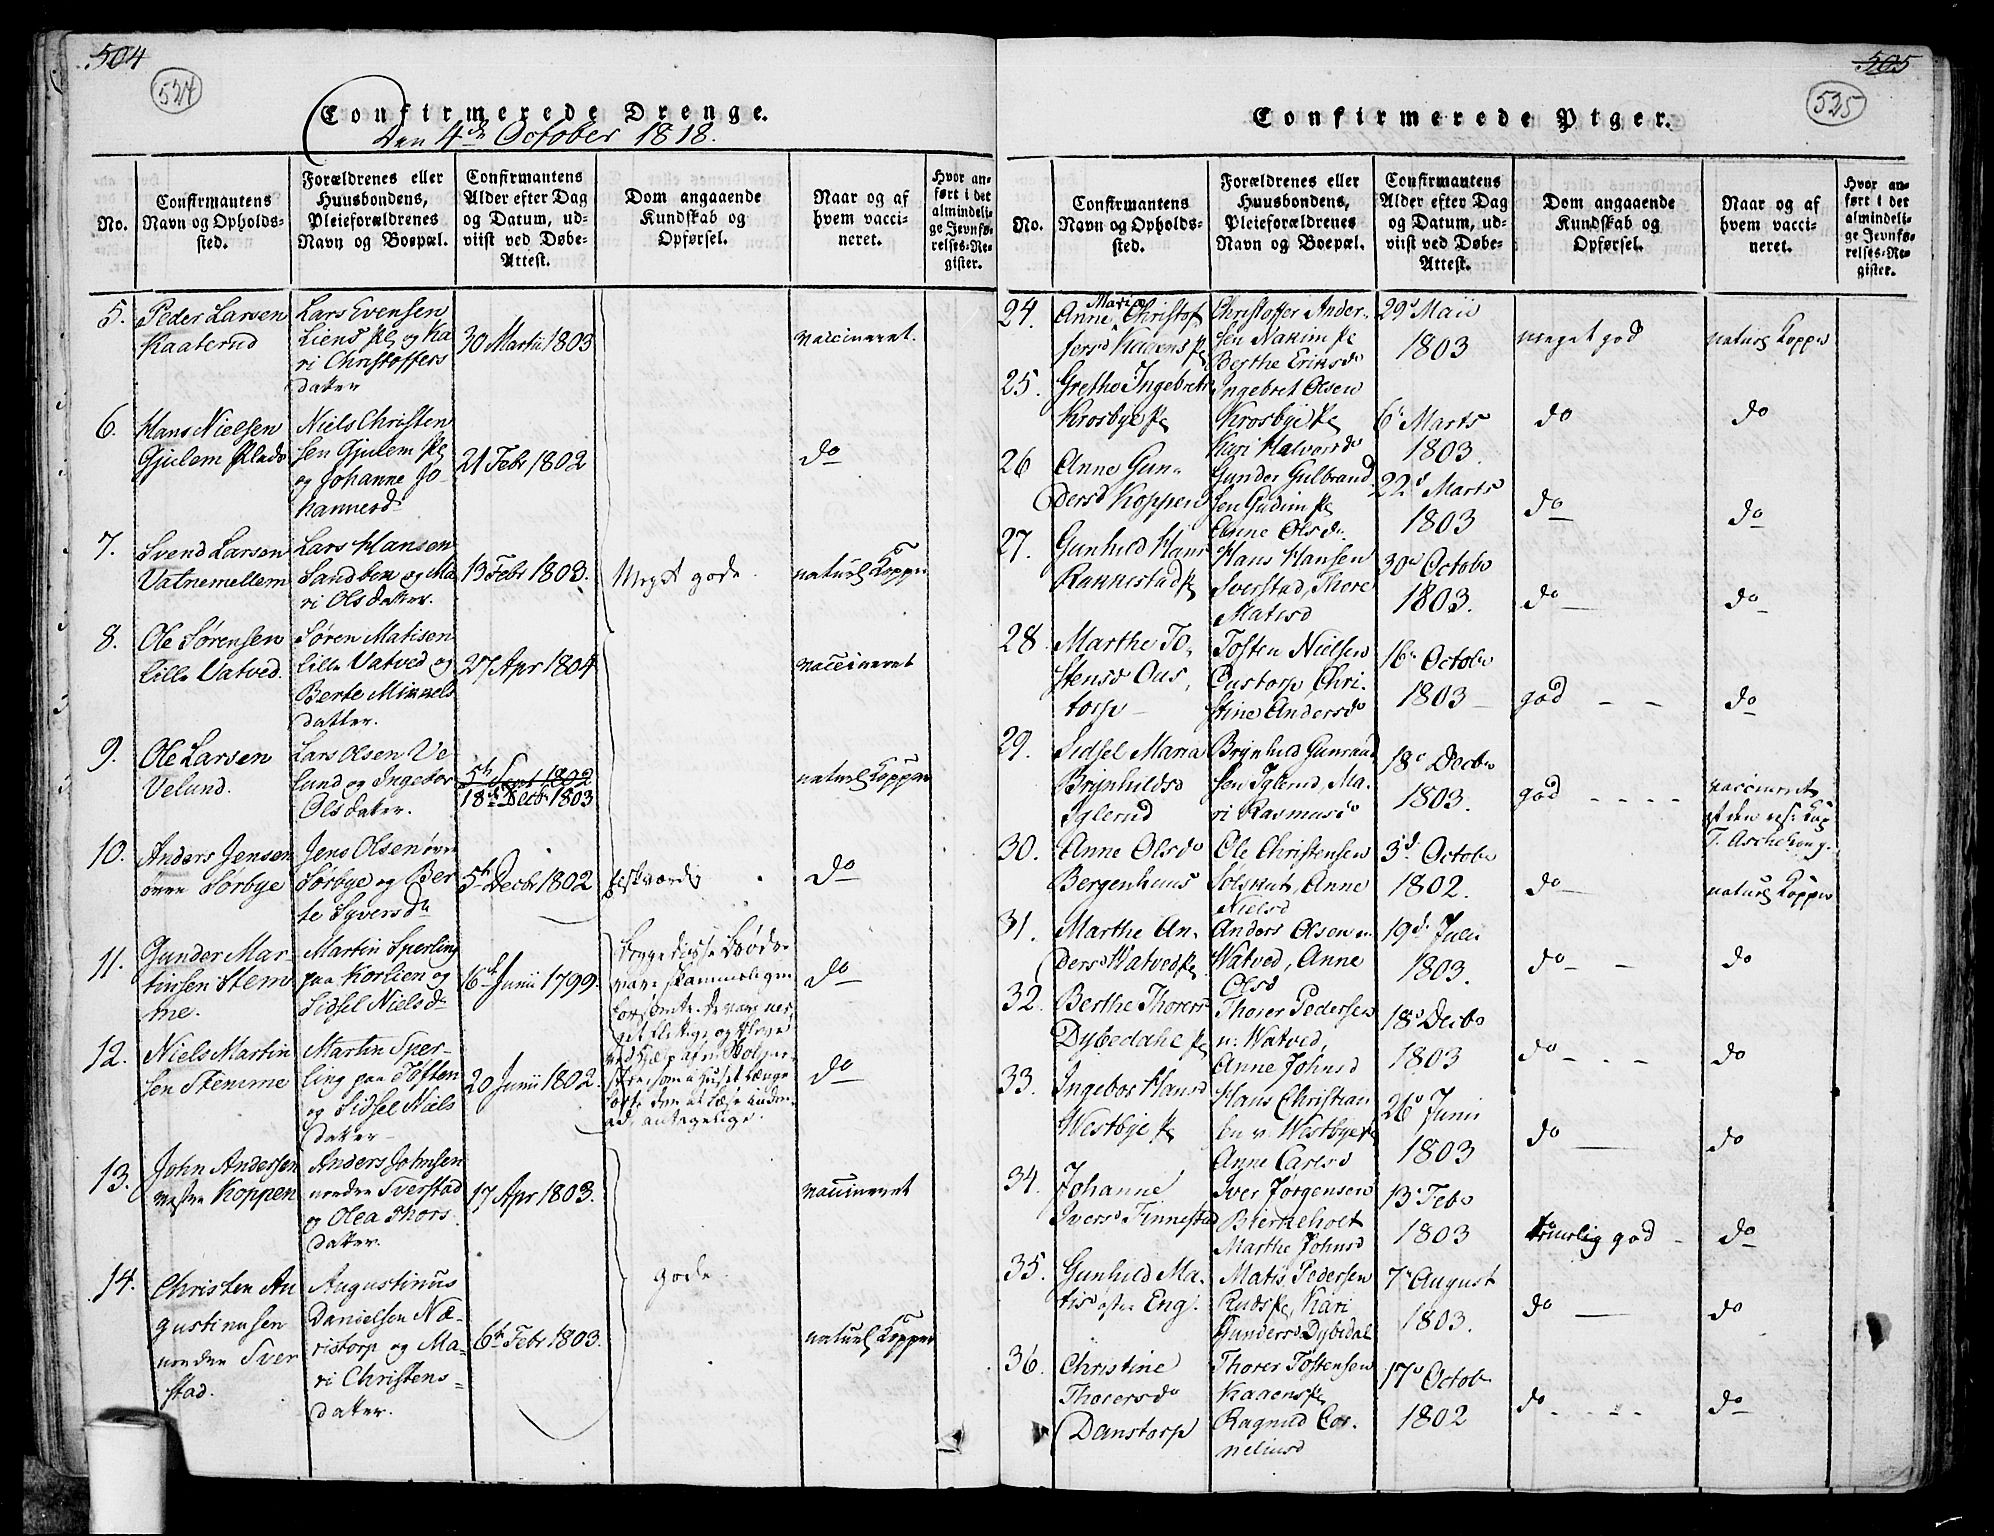 504
524
Confirmerede Drenge.
Den 4de October 1818.
No.
Confirmantens Navn og Opholds-sted.
Forældrenes eller Huusbondens, Pleieforældrenes Navn og Boepæl.
Confirmantens Alder efter Dag og Datum, ud-viist ved Døbe-Attest.
Dom angaaende Kundskab og Opførsel.
Naar og af hvem vacci-neret.
Hvor an-ført i det almindeli-ge Jevnfø-relses-Re-gister.
5.
Peder Larsen
Kaaterud
Lars Evensen
Liens Pl og Ka
ri Christoffers
datter
30 Martii 1803
vaccineret.
6.
Hans Nielsen
Gjulem Plads
Niels Christen
sen Gjulem Pl
og Johanne Jo-
hannesd
21 Febr 1802
do
7.
Svend Larsen
Vatnemellem
Lars Hansen
Sandben og Ma
ri Olsdatter.
13 Febr 1803.
Meget gode.
naturl Kopper
8.
Ole Sørensen
Lille Vatved.
Søren Matisen
lille Vatved og
Berte Mikkels
datter.
27 Apr 1804
vaccineret
9.
Ole Larsen
Velund.
Lars Olsen Ve
lund og Ingebor
Olsdatter.
5th Sept 1802
18de Decbr 1803
naturl Kopper
10.
Anders Jensen
øvre Sørbye
Jens Olsen øvre
Sørbye og Ber
te Syversd
5th Decbr 1802
do
11.
Gunder Mar-
tinsen Stem
me.
Martin Sperling
paa Korlien og
Sidsel Nielsd
16de Junii 1799.
Begge disse Brødre
vare skammeligen
forsømte. De vare me-
get flittige og bleve
ved Hjelp af
som i Huset længe
at læse inden-
ad, antagelige.
do
12.
Niels Martin
sen Stemme
Martin Sper-
ling paa Tøften
og Sidsel Niels
datter
20 Junii 1802.
do
13.
John Andersen
vestre Koppen
Anders Johnsen
nordre Sverstad
og Olea Thors
datter.
17 Apr 1803.
vaccineret
14.
Christen Au
gustinusen
nordre Sver
stad.
Augustinus
Danielsen Næ-
ristorp og Ma-
ri Christens-
datter.
6th Febr 1803.
gode
naturl Kopper
505
525
Confirmerede Piger.
No.
Confirmantens Navn og Opholds-sted.
Forældrenes eller Huusbondens, Pleieforældrenes Navn og Boepæl.
Confirmantens Alder efter Dag og Datum, ud-viist ved Døbe-Attest.
Dom angaaende Kundskab og Opførsel.
Naar og af hvem vacci-neret.
Hvor an-ført i det almindeli-ge Jevnfø-relses-Re-gister.
24.
Anne Maria Christof
fersd Kaaens Pl
Christoffer Ander-
sen Nakim Pl
Berthe Eriksd
29d Maii
1803
meget god
naturl Kopper
25.
Grethe Ingebretsd
Krosbye Pl
Ingebret Olsen
Krosbye Pl
Kari Halvorsd
6. Marts
1803.
do
do
26
Anne Gun-
dersd Koppen
Gunder Gulbrand
sen Gudim Pl
Anne Olsd.
22d Marts
1803
do
do
27.
Gunhild Hans
Rannestad Pl
Hans Hansen
Sverstad, Thore
Matisd
30d Octobr
1803.
do
do
28
Marthe To-
stensd Ous-
torp
Tosten Nielsen
Oustorp, Chri-
stine Andersd
16. Octobr
1803
god
do
29.
Sidsel Maria
Brynhildsd
Iglerud
Brynhild Gunnerud
sen Iglerud, Ma-
ri Rasmusd
18d Decbr
1803.
god
vaccineret
af den res: Kap
T. Aschehoug.
30.
Anne Olsd
Bergenhuus
Ole Christensen
Solskut, Anne
Nielsd
3d. Octobr
1802.
do
naturl Kopper
31.
Marthe An-
dersd Watved Pl
Anders Olsen n.
Watved, Anne
Olsd
19d. Julii
1803.
do
do
32.
Berthe Thorers
Dybedahl Pl
Thorer Pedersen
n: Watved,
Anne Johnsd
18d Decbr
1803
do
do
33.
Ingebor Hansd
Westbye Pl
Hans Christian
sen v: Westbye Pl
Anne Carlsd
26d Junii
1803
do
do
34.
Johanne
Iversd Finnestad
Iver Jørgensen
Bierkeholt
Marthe Johnsd
13. Febr
1803
temmelig god
do
35.
Gunhild Ma-
tisd østre Eng.
Matis Pedersen
Ruds Pl, Kari
Gundersd Dybedal
7. August
1803.
do
do
36.
Christine
Thorersd
Danstorp
Thorer Tostensen
Kaaens Pl
Ragnild Cor-
neliusd
17d Octob
1802
do
do